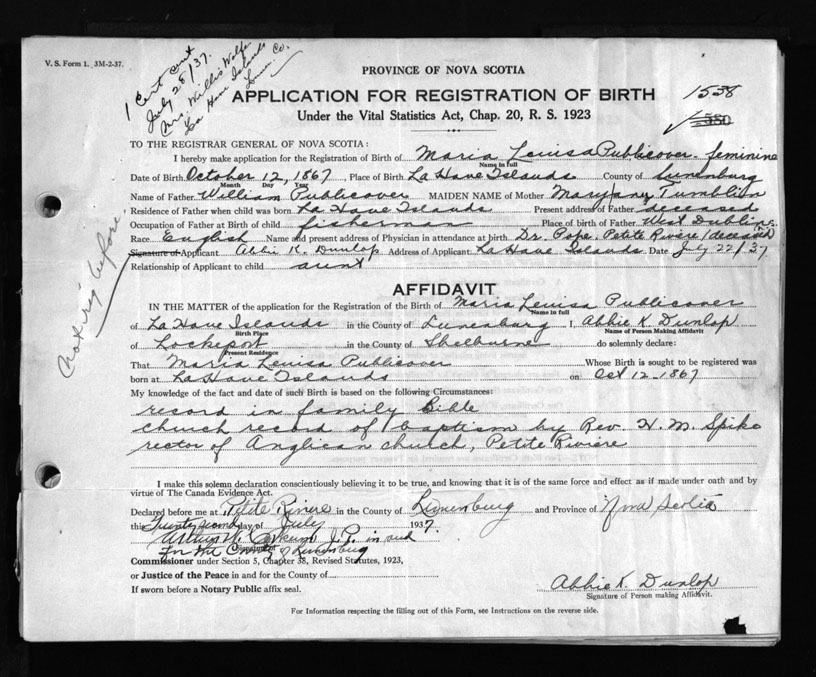 V. S. Form 1. 3M-2-37.
1 Cert sent
July 28/37.
Mrs Willis Wolfe
La Have Islands
Lun. Co.
PROVINCE OF NOVA SCOTIA
APPLICATION FOR REGISTRATION OF BIRTH
1558
Under the Vital Statistics Act, Chap. 20, R. S. 1923
TO THE REGISTRAR GENERAL OF NOVA SCOTIA:
I hereby make application for the Registration of Birth of Maria Louisa Publicover. feminine
Name in full
Date of Birth October 12, 1867, Place of Birth La Have Islands County of Lunenburg
Month Day Year
Name of Father William Publicover MAIDEN NAME of Mother Maryjany Tumblion
Residence of Father when child was born La Have Islands Present address of Father deceased
Occupation of Father at Birth of child fisherman Place of birth of Father West Dublin
Race English Name and present address of Physician in attendance at birth Dr. Pope. Petite Riviere (deceased)
Signature of Applicant Abbi K. Dunlop Address of Applicant La Have Islands Date July 22/37
Relationship of Applicant to child aunt
Not reg before.
AFFIDAVIT
IN THE MATTER of the application for the Registration of the Birth of Maria Louisa Publicover
Name in full
of La Have Islands in the County of Lunenburg I, Abbie K. Dunlop
Birth Place Name of Person Making Affidavit
of Lockeport in the County of Shelburne do solemnly declare:
Present Residence
That Maria Louisa Publicover Whose Birth is sought to be registered was
born at La Have Islands on Oct 12-1867
My knowledge of the fact and date of such Birth is based on the following Circumstances:
record in family Bible
church record of baptism by Rev. H. M. Spike
rector of Anglican church, Petite Riviere
I make this solemn declaration conscientiously believing it to be true, and knowing that it is of the same force and effect as if made under oath and by
virtue of The Canada Evidence Act.
Declared before me at Petite Riviere in the County of Lunenburg and Province of Nova Scotia
this Twenty second day of July 1937.
J. P. in and
for the County of Lunenburg
Commissioner under Section 5, Chapter 38, Revised Statutes, 1923,
or Justice of the Peace in and for the County of
If sworn before a Notary Public affix seal.
Abbie K. Dunlop
Signature of Person making Affidavit.
For Information respecting the filling out of this Form, see Instructions on the reverse side.